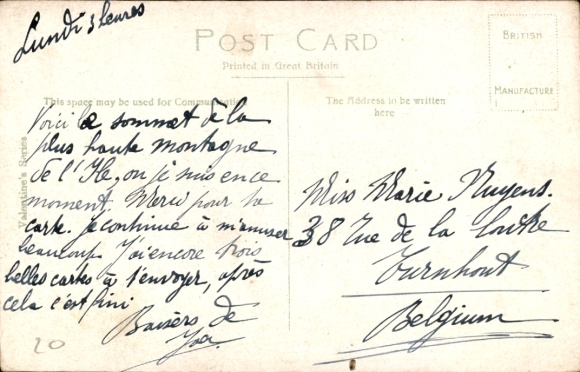 Lundi 3 heures
POST CARD
Printed in Great Britain
BRITISH
MANUFACTURE
This space may be used for Communication
The Address to be written
here
Valentine's Series
Voici le sommet de la
plus haute montagne
de l'Ile, ou je suis en ce
moment. Merci pour ta
carte. je continue à m'amuser
beaucoup. J'ai encore trois
belles cartes à t'envoyer, après
cela c'est fini
Baisers de
Miss Marie Nuyens.
38 Rue de la
Turnhout
Belgium
20